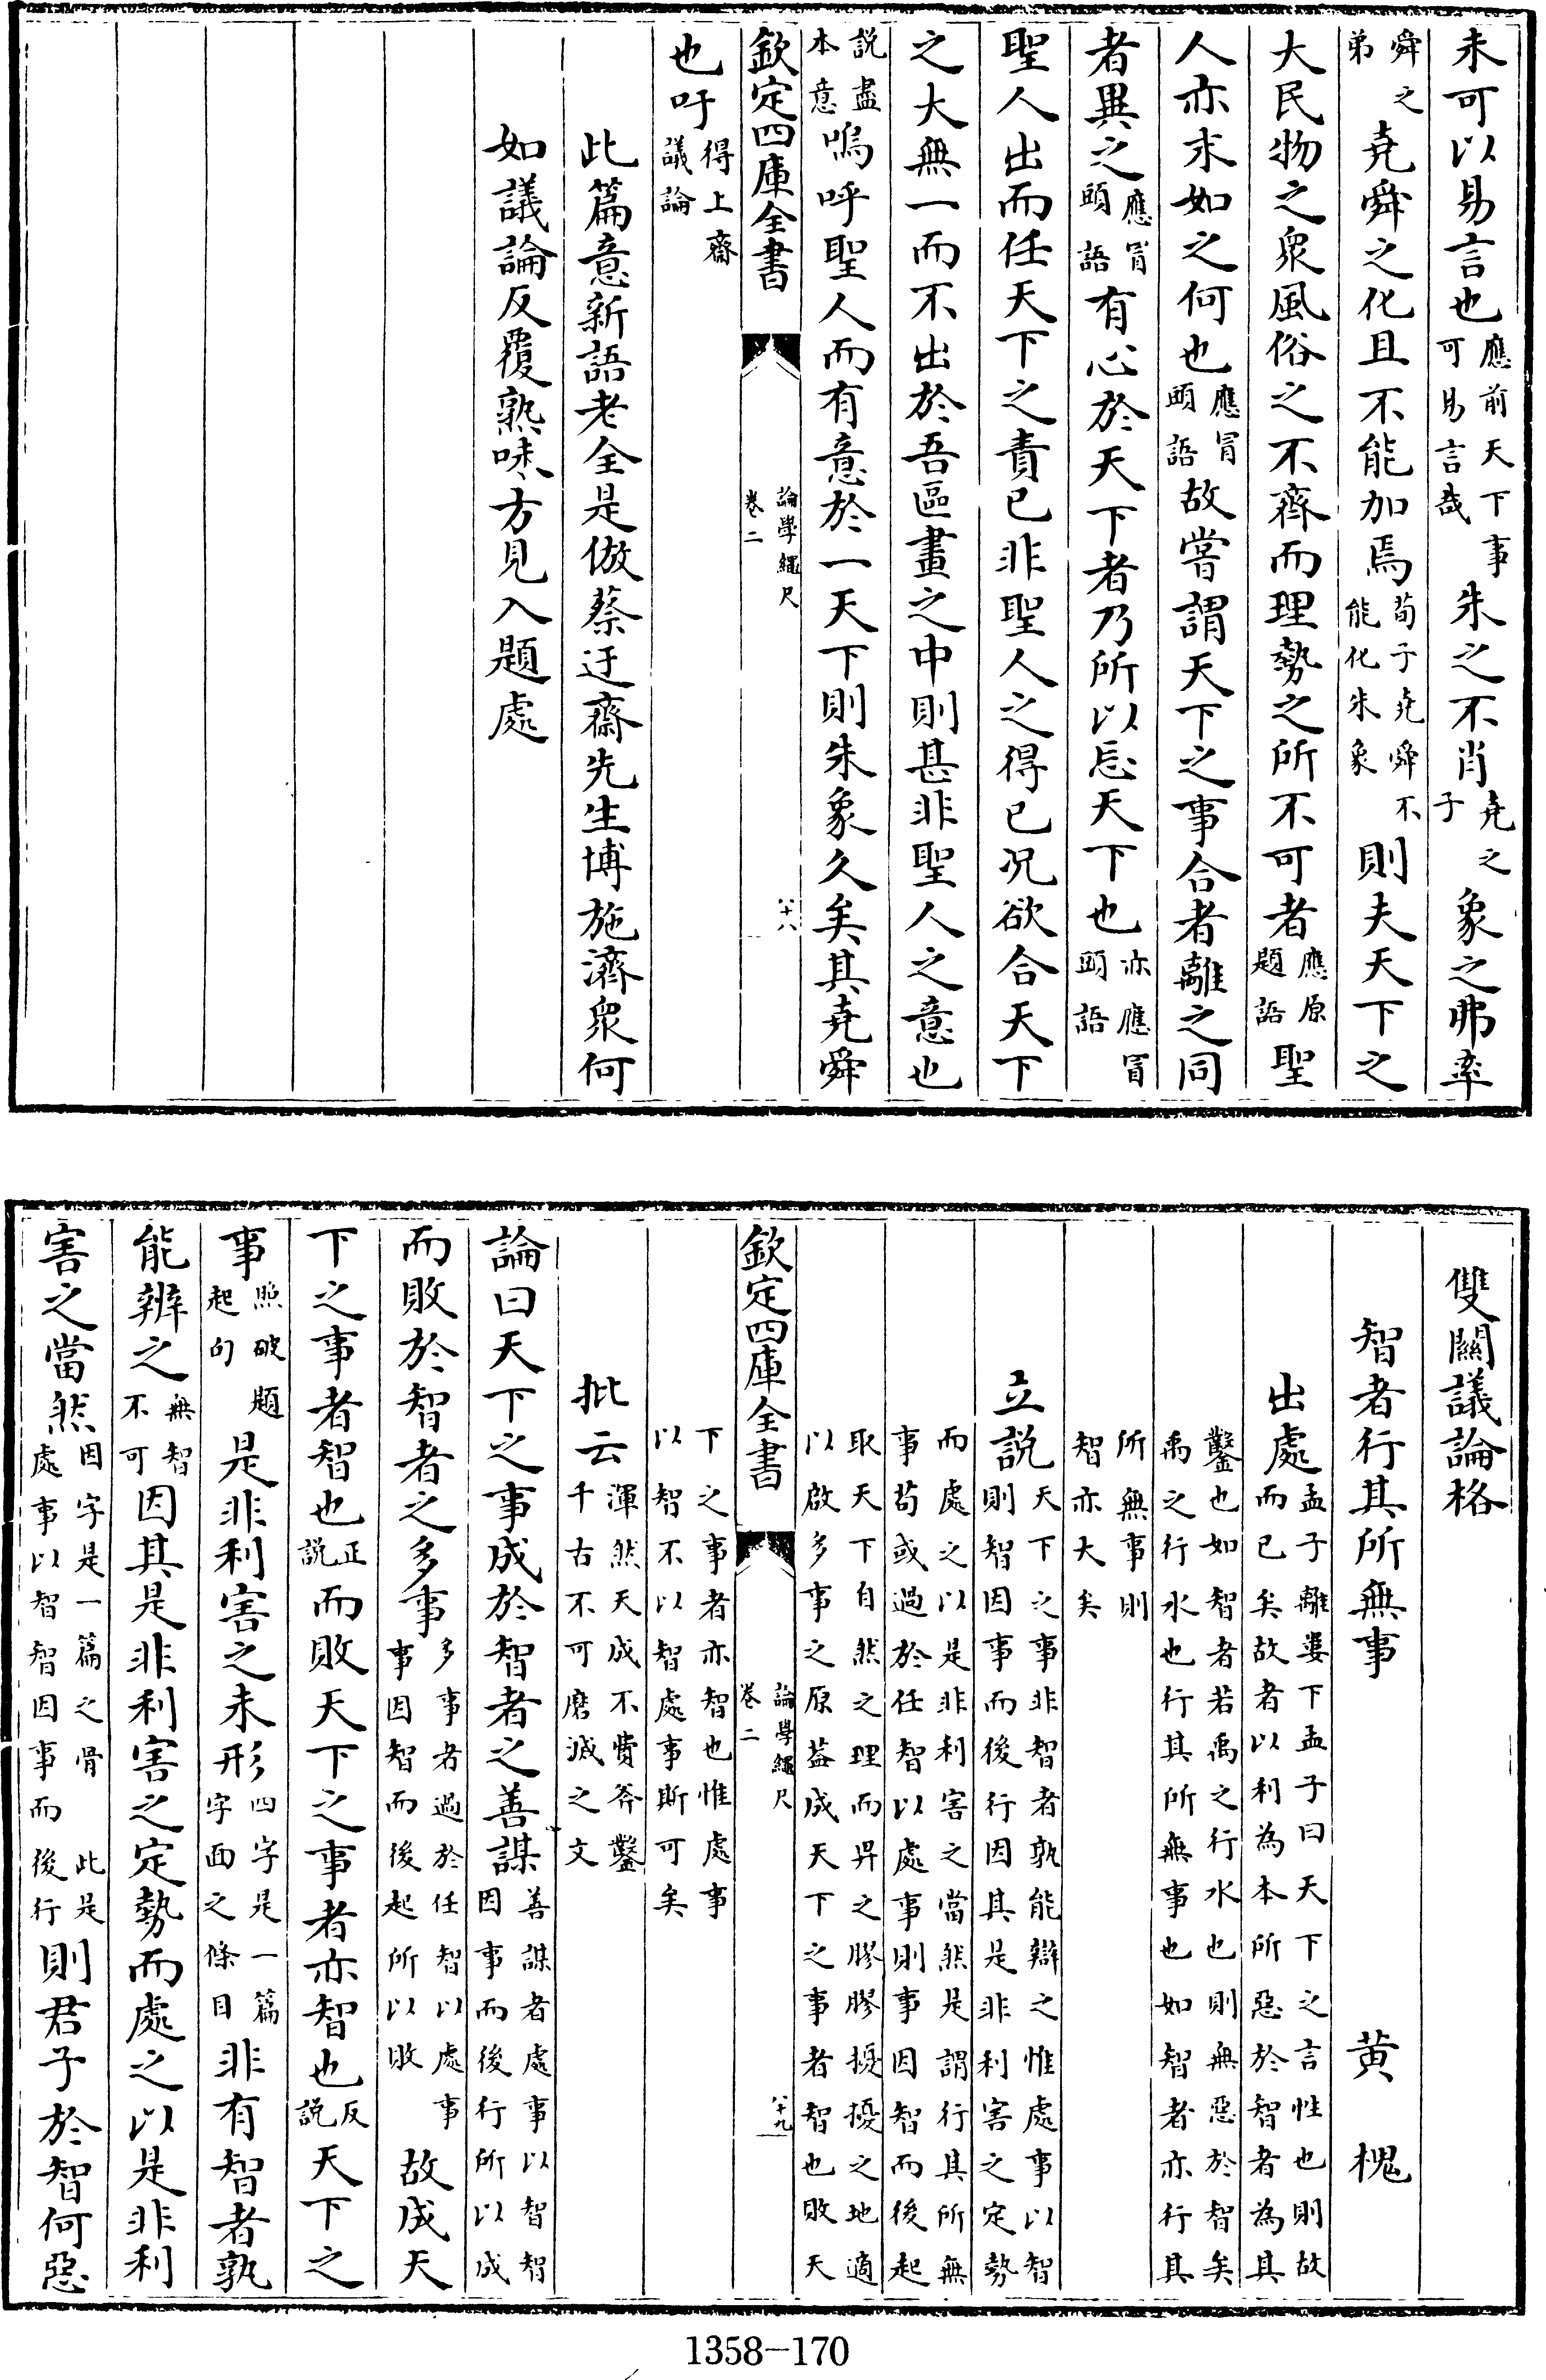 未可以易言也應前天下事可易言哉朱之不肖堯之子象之弗率
舜之弟堯舜之化且不能加焉荀子堯舜不能化朱象則夫天下之
大民物之衆風俗之不齊而理勢之所不可者應原題語聖
人亦末如之何也應冒頭語故嘗謂天下之事合者離之同
者異之應冒頭語有心於天下者乃所以忘天下也亦應冒頭語
聖人出而任天下之責已非聖人之得已况欲合天下
之大無一而不出於吾區畫之中則甚非聖人之意也
説盡本意嗚呼聖人而有意於一天下則朱象久矣其堯舜
欽定四庫全書 論學繩尺卷二 八十八
也吁得上齋議論
此篇意新語老全是倣蔡迂齋先生博施濟衆何
如議論反覆熟味方見入題處
雙關議論格
智者行其所無事 黄槐
出處孟子離婁下孟子曰天下之言性也則故而已矣故者以利為本所惡於智者為其
鑿也如智者若禹之行水也則無惡於智矣禹之行水也行其所無事也如智者亦行其
所無事則智亦大矣
立説天下之事非智者孰能辯之惟處事以智則智因事而後行因其是非利害之定勢
而處之以是非利害之當然是謂行其所無事苟或過於任智以處事則事因智而後起
取天下自然之理而畀之膠膠擾擾之地適以啟多事之原益成天下之事者智也敗天
欽定四庫全書 論學繩尺卷二 八十九
下之事者亦智也惟處事以智不以智處事斯可矣
批云渾然天成不費斧鑿千古不可磨滅之文
論曰天下之事成於智者之善謀善謀者處事以智智因事而後行所以成
而敗於智者之多事多事者過於任智以處事事因智而後起所以敗故成天
下之事者智也正説而敗天下之事者亦智也反説天下之
事照破題起句是非利害之未形四字是一篇字面之條目非有智者孰
能辨之無智不可因其是非利害之定勢而處之以是非利
害之當然因字是一篇之骨此是處事以智智因事而後行則君子於智何惡
1358-170